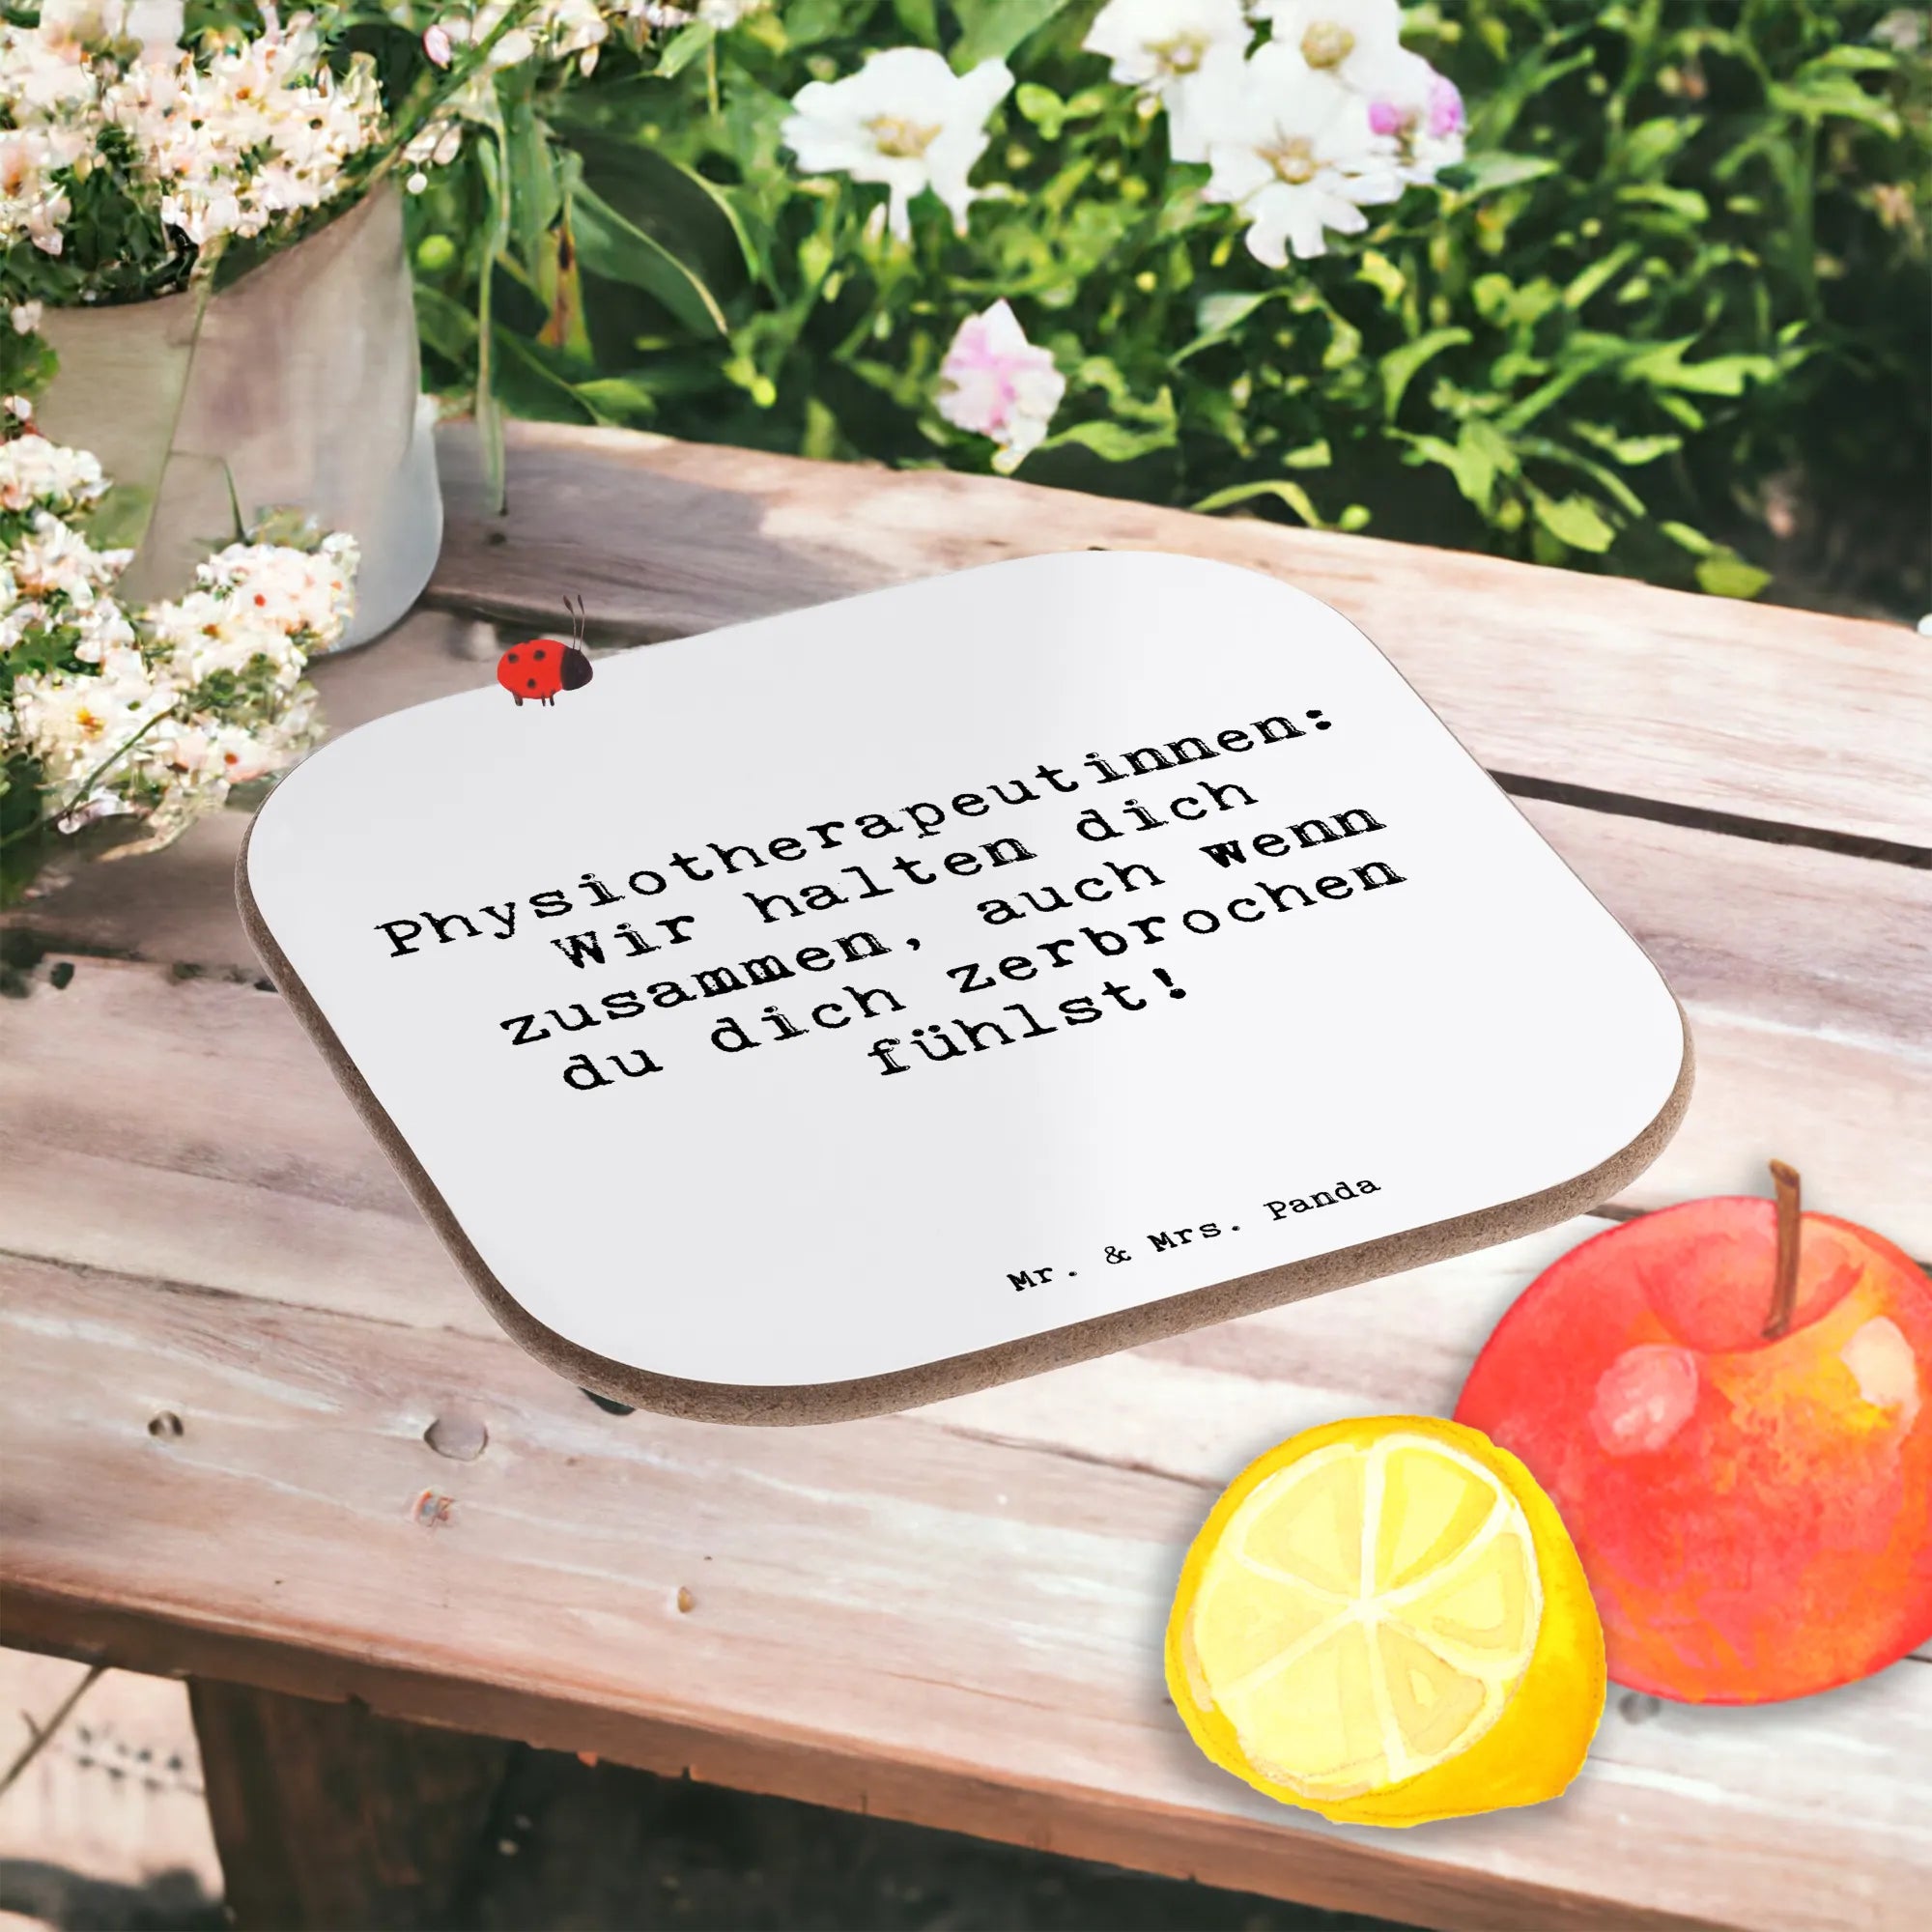 Physiotherapeutinnen:
Wir halten dich
zusammen, auch wenn
du dich zerbrochen
fühlst!
Mr. & Mrs. Panda